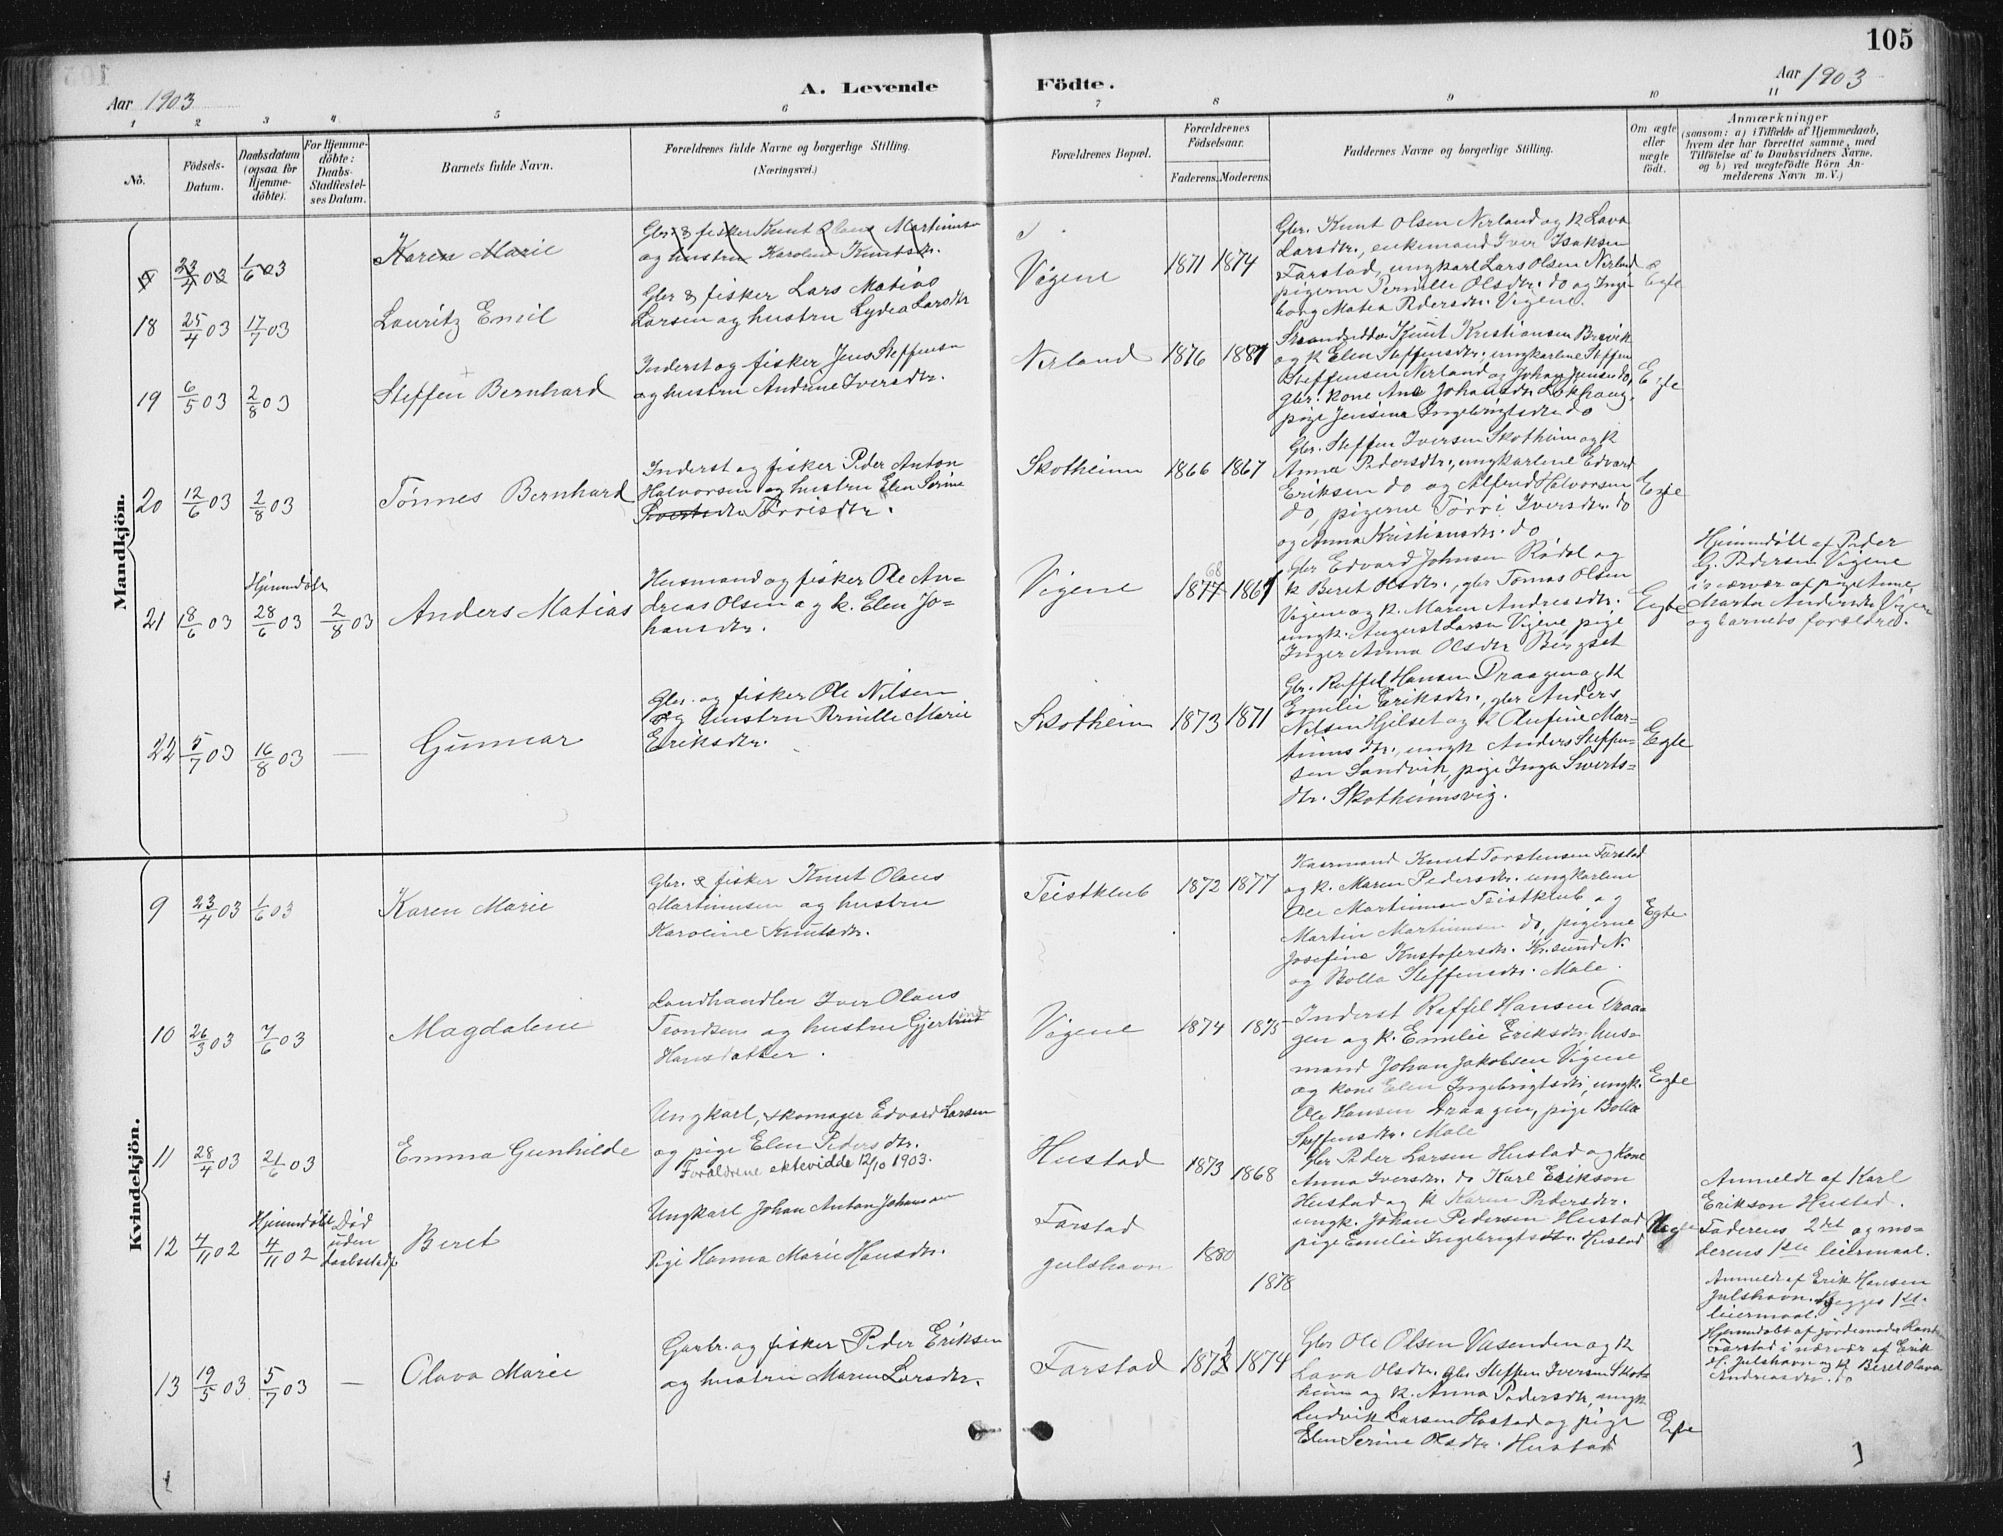 105
Aar 1903
A. Levende
Födte.
Aar 1903
1 2 3 4 5 6 7 8 9 10 11
No.
Födsels-
Datum.
Daabsdatum
(ogsaa for
Hjemme-
döbte).
For Hjemme-
döbte:
Daabs-
Stadfæstel-
ses Datum.
Barnets fulde Navn.
Forældrenes fulde Navne og borgerlige Stilling.
(Næringsvei.)
Forældrenes Bopæl.
Forældrenes
Födselsaar.
Faderens. Moderens.
Faddernes Navne og borgerlige Stilling.
Om ægte
eller
uægte
födt.
Anmærkninger
(saasom: a) i Tilfælde af Hjemmedaab,
hvem der har forrettet samme, med
Tilföielse af to Daabsvidners Navne,
og b) ved uægtefödte Börn An-
melderens Navn m. V.)
Mandkjön.
9 23/4 02 1/6 03
Karen Marie
Gbr. & fisker Knut Olaus Martinusen
og hustru Karoline Knutsdtr.
18 25/4 03 17/7 03
Lauritz Emil
Gbr & fisker Lars Matias
Larsen og hustru Lydea Larsdtr
Vigene
1871 1874
Gbr. Knut Olsen Nerland og k Lava
Larsdtr., enkemand Iver Isaksen
Farstad, ungkarl Lars Olsen Nerland
pigerne Pernille Olsdtr. do og Inge-
borg Matea Pedersdtr. Vigene.
Egte
19 6/5 03 2/8 03
Steffen Bernhard
Inderst og fisker Jens Steffensen
og hustru Andrine Iversdtr.
Nerland
1876 1881
Strandsidder Knut Kristiansen Brevik
og k Elen Steffensdtr., ungkarlene Steffen
Steffensen Nerland og Johan Jensen do,
gbr. kone Ane Johansdtr. Løkhaug,
pige Jensine Ingebrigtsdtr do
Egte
20 12/6 03 2/8 03
Tønnes Bernhard
Inderst og fisker Peder Anton
Halvorsen og hustru Elen Serine
Tørrisdtr.
Skotheim
1866 1867
Gbr. Steffen Iversen Skotheim og k
Anna Pedersdtr., ungkarlene Edvard
Eriksen do og Alfred Halvorsen
do, pigerne Tørri Iversdtr. do
og Anna Kristiansdtr. do
Egte
21 18/6 03
Hjemmdøbt
28/6 03 2/8 03
Anders Matias
Husmand og fisker Ole An-
dreas Olsen og k. Elen Jo-
hansdtr.
Vigene
68
1877 1861
gbr Edvard Johnsen Rødal og
k Beret Olsdtr., gbr Tomas Olsen
Vigene og k. Maren Andreasdtr.
ungk. August Larsen Vigene, pige
Inger Anna Olsdtr Bergset
Egte
Hjemmdøbt af Peder
G. Pedersen Vigene
i nærvær af pige Anne
Marta Andersdtr Vigene
og barnets forældre.
22 5/7 03 16/8 03 —
Gunnar
Gbr. og fisker Ole Nilsen
og hustru Pernille Marie
Eriksdtr.
Skotheim
1873 1871
Gbr. Raffel Hansen Draagen og k
Emelie Eriksdtr., gbr Anders
Nilsen Hjelset og k Anfine Mar-
tinusdtr., ungk Anders Steffen-
sen Sandvik, pige Inga Sverts-
dtr. Skotheimsvig.
Egte
Kvindekjön.
9 23/4 03 1/6 03
Karen Marie
Gbr. & fisker Knut Olaus
Martinusen og hustru
Karoline Knutsdtr.
Teistklub
1872 1877
Kaarmand Knut Torstensen Farstad
og k. Maren Pedersdtr. ungkarlene
Ole Martinusen Teistklub og
Martin Martinusen do, pigerne
Josefine Kristofersdtr. Kr.sund N.
og Bolla Steffensdtr. Male.
Egte
10 26/3 03 7/6 03
Magdalene
Landhandler Iver Olaus
Trondsen og hustru Gjertrud
Hansdatter.
Vigene
1874 1875
Inderst Raffel Hansen Draa-
gen og k. Emelie Eriksdtr, hus-
mand Johan Jakobsen Vigene
og kone Elen Ingebrigtsdtr, ungk.
Ole Hansen Draagen, pige Bolla
Steffensdtr. Male
Egte
11 28/4 03 21/6 03
Emma Gunhilde
Ungkarl, skomager Edvard Larsen
og pige Elen Pedersdtr.
Forældrene ektevidde 12/10 1903.
Hustad
1873 1868
Gbr Peder Larsen Hustad og kone
Anna Iversdtr. do Karl Erikson
Hustad og k Karen Pedersdtr.
ungk. Johan Pedersen Hustad
pige Emelie Ingebrigtsdtr. Hustad
Uegte
Anmeldt af Karl
Erikson Hustad.
Faderens 2det og mo-
derens 1ste leiermaal.
12 4/11 02
Hjemmdøbt
4/11 02
Død
uden
daabsstadf
Beret
Ungkarl Johan Anton Johansen
Pige Hanna Marie Hansdtr.
Farstad
Julshavn
1880
1878
Anmeldt af Erik Hansen
Julshavn. Begges 1ste
leiermaal.
Hjemmdøbt af jordemoder
Farstad i nærvær af Erik
H. Julshavn og k Beret Olava
Andreasdtr. do
13 19/5 03 5/7 03 —
Olava Marie
Gaardbr. og fisker Peder Eriksen
og hustru Maren Larsdtr.
Farstad
1872 1874
Gbr Ole Olsen Vasenden og k
Lava Olsdtr. gbr Steffen Iversen Skot-
heim og k. Anna Pedersdtr, ungk
Ludvik Larsen Hustad og pige
Elen Serine Olsdtr. Hustad
Egte